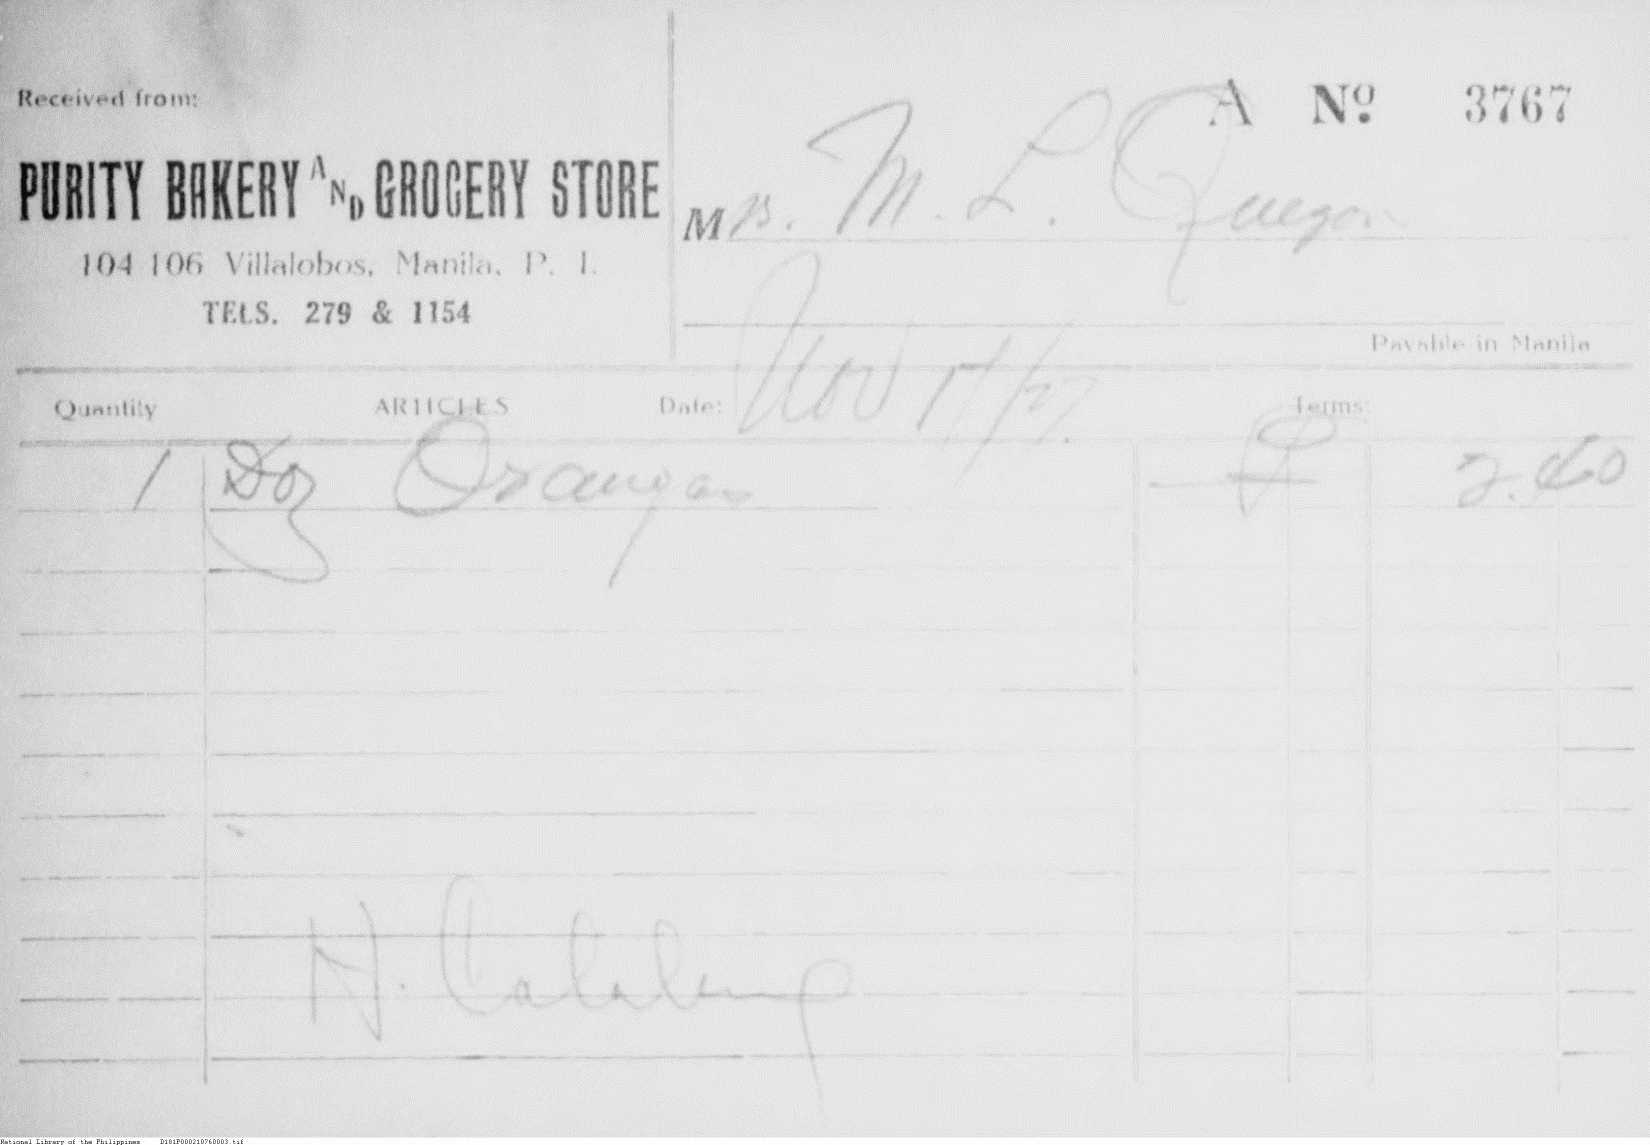 Received from:
PURITY BAKERY AND GROCERY STORE
104 106 Villalobos, Manila, P. I.
TELS. 279 & 1154
A No 3767
Mrs. M. L. Quezon
Payable in Manila
Quantity ARTICLES Date: Nov 17/27. Terms:
1 Doz Oranges ₱ 2.60
National Library of the Philippines D101P000210760003.tif